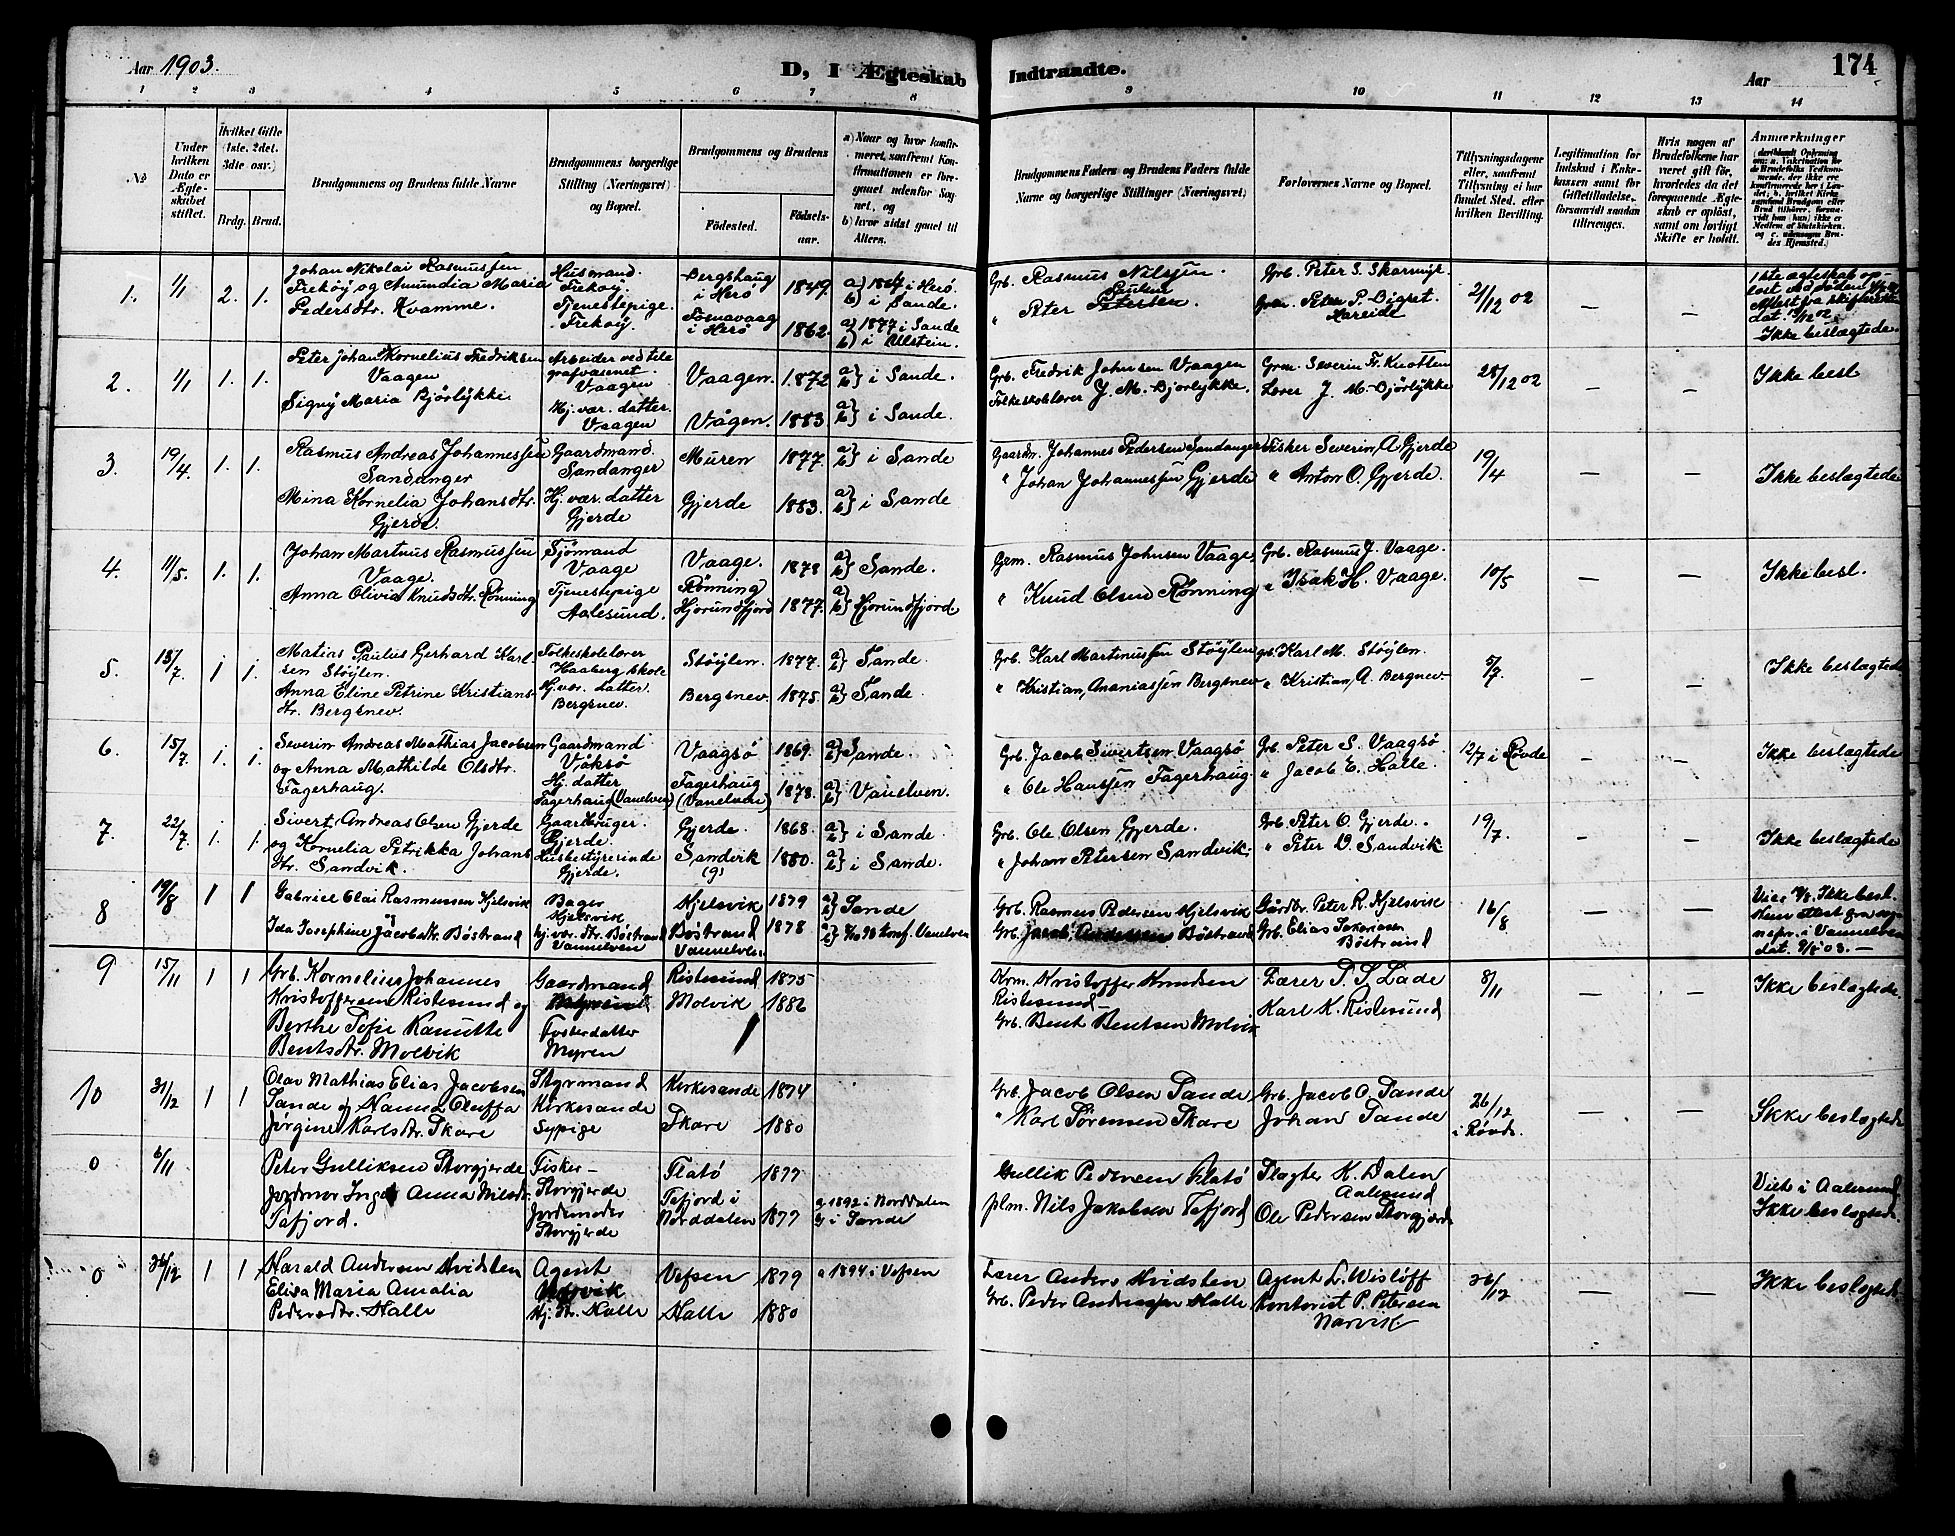 Aar 1903.
D, I Ægteskab
Indtraadte.
Aar
174
1 2 3 4 5 6 7 8 9 10 11 12 13 14
No
Under hvilken Dato er Ægteskabet stiftet.
Hvilket Gifte (1ste, 2det, 3die osv.)
Brdg. Brud.
Brudgommens og Brudens fulde Navne
Brudgommens borgerlige Stilling (Næringsvei) og Bopæl.
Brudgommens og Brudens
Fødested.
Fødselsaar.
a) Naar og hvor konfirmeret, saafremt Konfirmationen er foregaaet udenfor Sognet, og
b) hvor sidst gaaet til Alters.
Brudgommens Faders og Brudens Faders fulde Navne og borgerlige Stillinger (Næringsvei)
Forlovernes Navne og Bopæl.
Tillysningsdagene eller, saafremt Tillysning ei har fundet Sted, efter hvilken Bevilling.
Legitimation for Indskud i Enkekassen samt for Giftetilladelse, forsaavidt saadan tiltrænges.
Hvis nogen af Brudefolkene har været gift før, hvorledes da det foregaaende Ægteskab er opløst, samt om lovligt Skifte er holdt.
Anmærkninger
1. 1/1 2. 1.
Johan Nikolai Rasmussen
Frekøy og Amundia Maria
Pedersdtr. Kvamme.
Husmand.
Frekøy.
Tjenestepige.
Frekøy.
Bergshaug
i Herö
1849.
i Herö
1862.
a) 1864 i Herö.
b) i Sande.
a) 1877 i Sande
b) i Ulstein.
Grb. Rasmus Nilsen.
" Peter Paulsen Petersen.
Grb. Peter S. Skarmyr
Grm. Peter P. Digret
Hareide
21/12 02
1ste ægteskab op-
löst ved döden
Attest fra skifteretten
Ikke beslægtede
2. 1/1 1. 1.
Peter Johan Kornelius Fredriksen
Vaagen
Signy Maria Bjørlykke.
Arbeider ved tele
grafvæsenet.
Vaagen
Hj. vær. datter.
Vaagen
Vaagen. 1872
Vågen. 1883.
a) b) i Sande.
a) b) i Sande.
Grb. Fredrik Johnsen Vaagen
Folkeskolelærer J. M. Bjørlykke,
Grm. Severin Fr. Knotten
Lærer J. M. Bjørlykke
28/12 02
—
—
Ikke besl
3. 19/4. 1. 1.
Rasmus Andreas Johannessen
Sandanger
Mina Kornelia Johansdtr.
Gjerde.
Gaardmand.
Sandanger
Hj. vær. datter
Gjerde
Muren 1877.
Gjerde 1883.
a) b) i Sande
a) b) i Sande
Gaardm. Johannes Pedersen Sandanger
" Johan Johannessen Gjerde
Fisker Severin A. Gjerde
" Anton O. Gjerde.
19/4
—
—
Ikke beslægtede
4. 11/5. 1. 1.
Johan Martnus Rasmussen
Vaage.
Anna Olivia Knudsdtr. Rønning
Sjømand
Vaage
Tjenestepige
Aalesund.
Vaage. 1878
Rønning
Hjørundfjord 1877.
a) b) Sande.
a) b) Hjørundfjord
Gem. Rasmus Johnsen Vaage,
" Knud Olsen Rønning
Grb. Rasmus J. Vaage.
" Isak H. Vaage.
10/5
—
—
Ikke besl.
5. 15/7. 1 1.
Matias Paulus Gerhard Karl-
sen Støylen.
Anna Eline Petrine Kristians-
dtr. Bergsnev.
Folkeskolelærer
Haaberg skole
Hj. vær. datter.
Bergsnev.
Støylen. 1877.
Bergsnev. 1875.
a) b) Sande.
a) b) Sande.
Grb. Karl Martinussen Støylen
" Kristian Ananiassen Bergsnev
Grb. Karl M. Støylen.
" Kristian A. Bergsnev
5/7.
—
—
Ikke beslægtede
6. 15/7. 1. 1.
Severin Andreas Mathias Jacobsen
og Anna Mathilde Olsdtr.
Fagerhaug.
Gaardmand
Vaksø
Hj. datter
Fagerhaug (Vanelven)
Vaagsø 1869.
Fagerhaug
(Vanelven) 1878.
a) b) Sande.
a) b) Vanelven.
Grb. Jacob Sivertsen Vaagsø
" Ole Hanssen Fagerhaug.
Grb. Peter S. Vaagsø
" Jacob E. Halle.
12/7 i Røvde
—
—
Ikke beslægtede
7. 22/7. 1. 1.
Sivert Andreas Olsen Gjerde
og Kornelia Petrikka Johans
dtr. Sandvik.
Gaardbruger.
Gjerde.
Husbestyrerinde
Gjerde.
Gjerde. 1868.
Sandvik 1880.
a) b) i Sande.
a) b) i Sande.
Grb. Ole Olsen Gjerde.
" Johan Petersen Sandvik.
Grb. Peter O. Gjerde.
" Peter V. Sandvik
19/7.
—
—
Ikke beslægtede
8 19/8 1 1
Gabriel Olai Rasmussen Hjelsvik
Ida Josephine Jacobsdtr. Böstrand
Bager
Hjelsvik
hj. vær. dtr. Böstrand
Vannelven
Hjelsvik 1879
Böstrand 1878
Vannelven
a) b) Sande
konf. Vanelven
Grb. Rasmus Pedersen Hjelsvik
Grb. Jacob Andersen Böstrand
Gårdbr. Peter R. Hjelsvik
Grb. Elias Sakariasen
Böstrand
16/8
—
—
Ikke besl.
nepr. i Vannelven
dat. 9/8 03. —
9 15/11 1 1
Grb. Kornelius Johannes
Kristoffersen Ristesund og
Berthe Sofie Kanutte
Bentsdtr. Molvik
Gaardmand
Fosterdatter
Myren
Ristesund 1875
Molvik 1886
Krm. Kristoffer Knudsen
Ristesund —
Grb. Bent Bentsen Molvik
Lærer P. S. Lade
Karl K. Ristesund
8/11
—
—
Ikke beslægtede.
10 31/12 1 1
Olav Mathias Elias Jacobsen
Sande og Nanna Oluffa
Jørgine Karlsdtr. Skare
Styrmand
Kirkesande
Sypige
Kirkesande 1874
Skare 1880
Grb. Jacob Olsen Sande
" Karl Sørensen Skare
Grb. Jacob O. Sande
Johan Sande
26/12
i Røvde.
—
—
Ikke beslægtede
0 6/11
Peter Gulliksen Storgjerde
Jordmor Inga Anna Nilsdtr.
Tafjord.
Fisker —
Storgjerde
Jordmoder
Storgjerde
Flatø 1877
Tafjord i
Norddalen 1877
a 1892 i Norddalen
b i Sande
Gullik Pedersen Flatø
plm. Nils Jakobsen Tafjord
Slagter K. Dalen
Aalesund
Ole Pedersen Storgjerde
Viet i Aalesund
Ikke beslægtede.
0 26/12 1 1
Harald Andersen Hvidsten
Elisa Maria Amalia
Pedersdtr. Halle
Agent
Narvik
Hj. dtr. Halle
Vefsen 1879
Halle 1880
a 1894 i Vefsen
Lærer Anders Hvidsten
Grb. Peder Andreassen Halle
Agent L. Wisløff
Kontorist P. Petersen
Narvik.
26/12
—
—
Ikke beslægtede